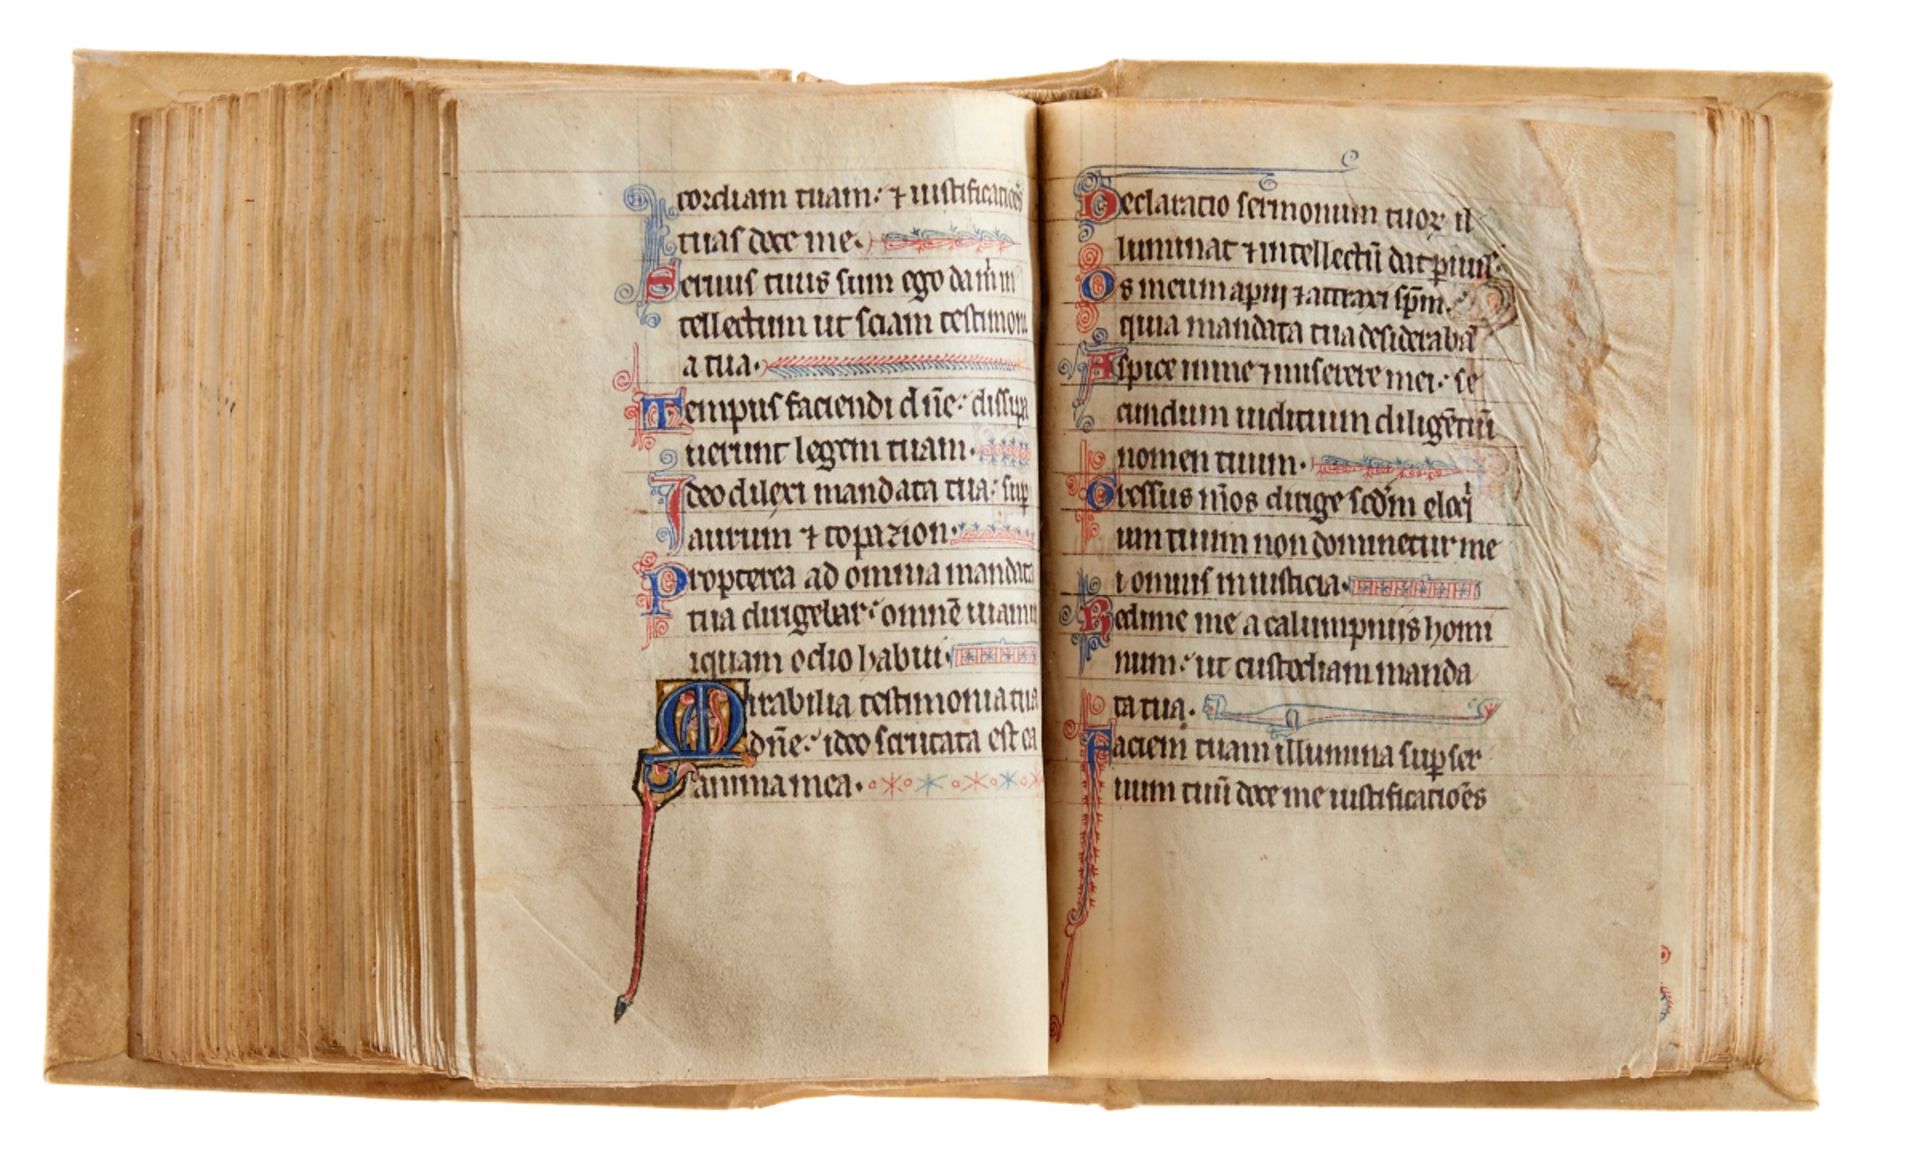 cordiam tuam: ⁊ iustificatiões
tuas doce me.
Seruus tuus sum ego da m in
tellectum ut sciam testimoni
a tua.
Tempus faciendi dñe: dissipa
uerunt legem tuam.
Ideo dilexi mandata tua: sup
aurum ⁊ topazion.
Propterea ad omnia mandata
tua dirigebar: omnē uiam in
iquam odio habui.
Mirabilia testimonia tua
dñe: ideo scrutata est ea
anima mea.
Declaratio sermonum tuoꝝ il
luminat ⁊ intellectū dat paruul
Os meum aperui ⁊ attraxi spm.
quia mandata tua desiderabā
Aspice in me ⁊ miserere mei: se
cundum iuditium diligētiū
nomen tuum.
Gressus mōs dirige scdm eloqi
um tuum non dominetur me
i omnis iniusticia.
Redime me a calumpniis homi
num: ut custodiam manda
ta tua.
Faciem tuam illumina sup ser
uum tuū doce me iustificatiōes